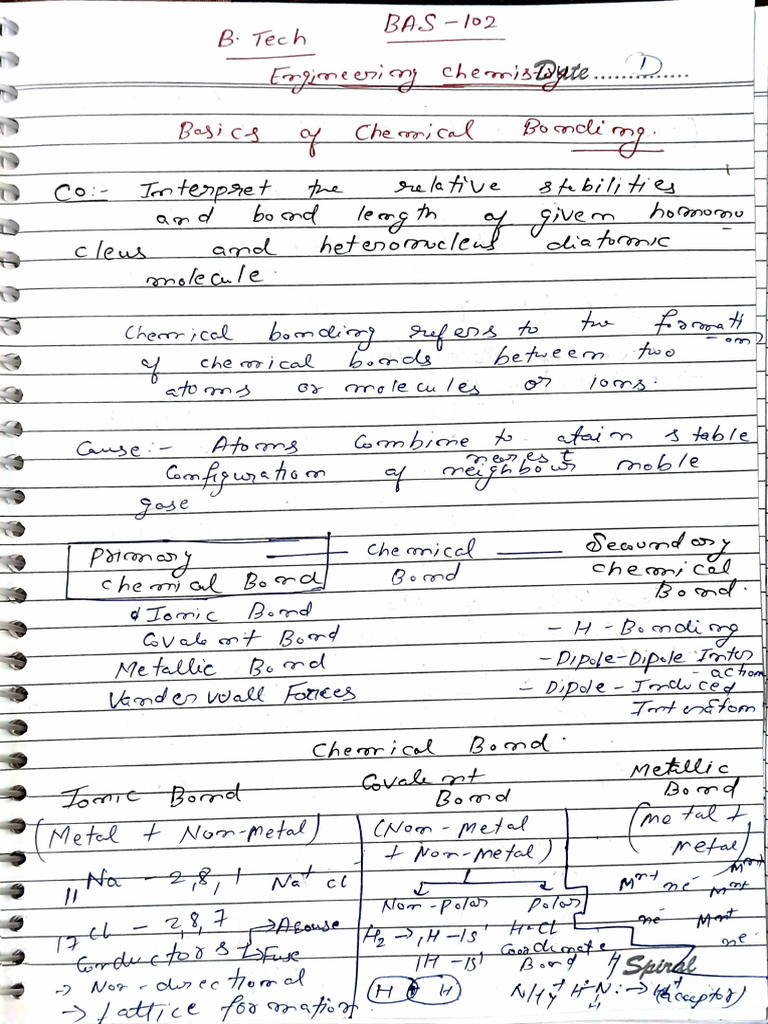 B. Tech BAS-102
Engineering chemistry Date ............... 1
Basics of Chemical Bonding.
CO:- Interpret the relative stabilities
and bond length of given homonu
cleus and heteronucleus diatomic
molecule.
Chemical bonding refers to the formati
-on
of chemical bonds between two
atoms or molecules or ions.
Cause:- Atoms combine to atain stable
configuration of nearest neighbour noble
gase
Primary — Chemical — Secoundary
Chemial Bond Bond Chemical
Bond.
Ionic Bond
Covalent Bond - H - Bonding
Metallic Bond - Dipole-Dipole Inter
-action
Vander Wall Forces - Dipole - Induced
Chemical Bond.
Ionic Bond Covalent Bond Metallic Bond
(Metal + Non-Metal) (Non-Metal + Non-Metal) (metal + metal)
11Na - 2,8,1 Na+ Cl Mn+ ne- Mn+ Mn+
Non-polar Polar
17Cl - 2,8,7 H2 → 1H-1s1 H-Cl ne- Mn+
Conductors Fuse 1H-1s1 Coordinate Bond ne-
→ Non-directional H Spiral
→ Lattice formation H H H-N: → H+ (acceptor)
H